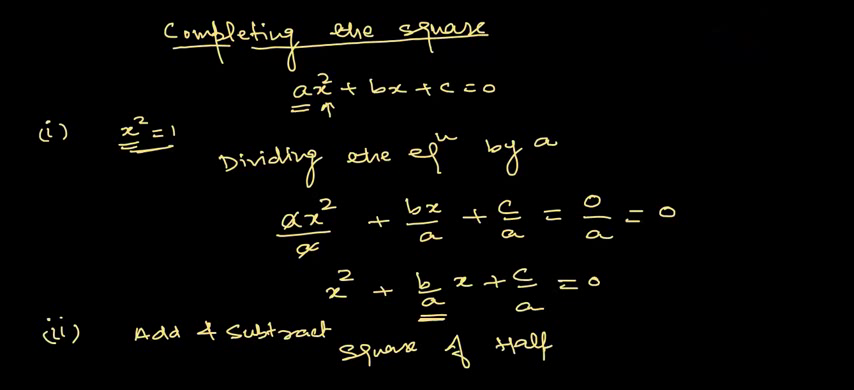 Completing the square
ax² + bx + c = 0
(i) x² = 1
Dividing the eqⁿ by a
ax²/a + bx/a + c/a = 0/a = 0
x² + b/a x + c/a = 0
(ii) Add & Subtract square of Half